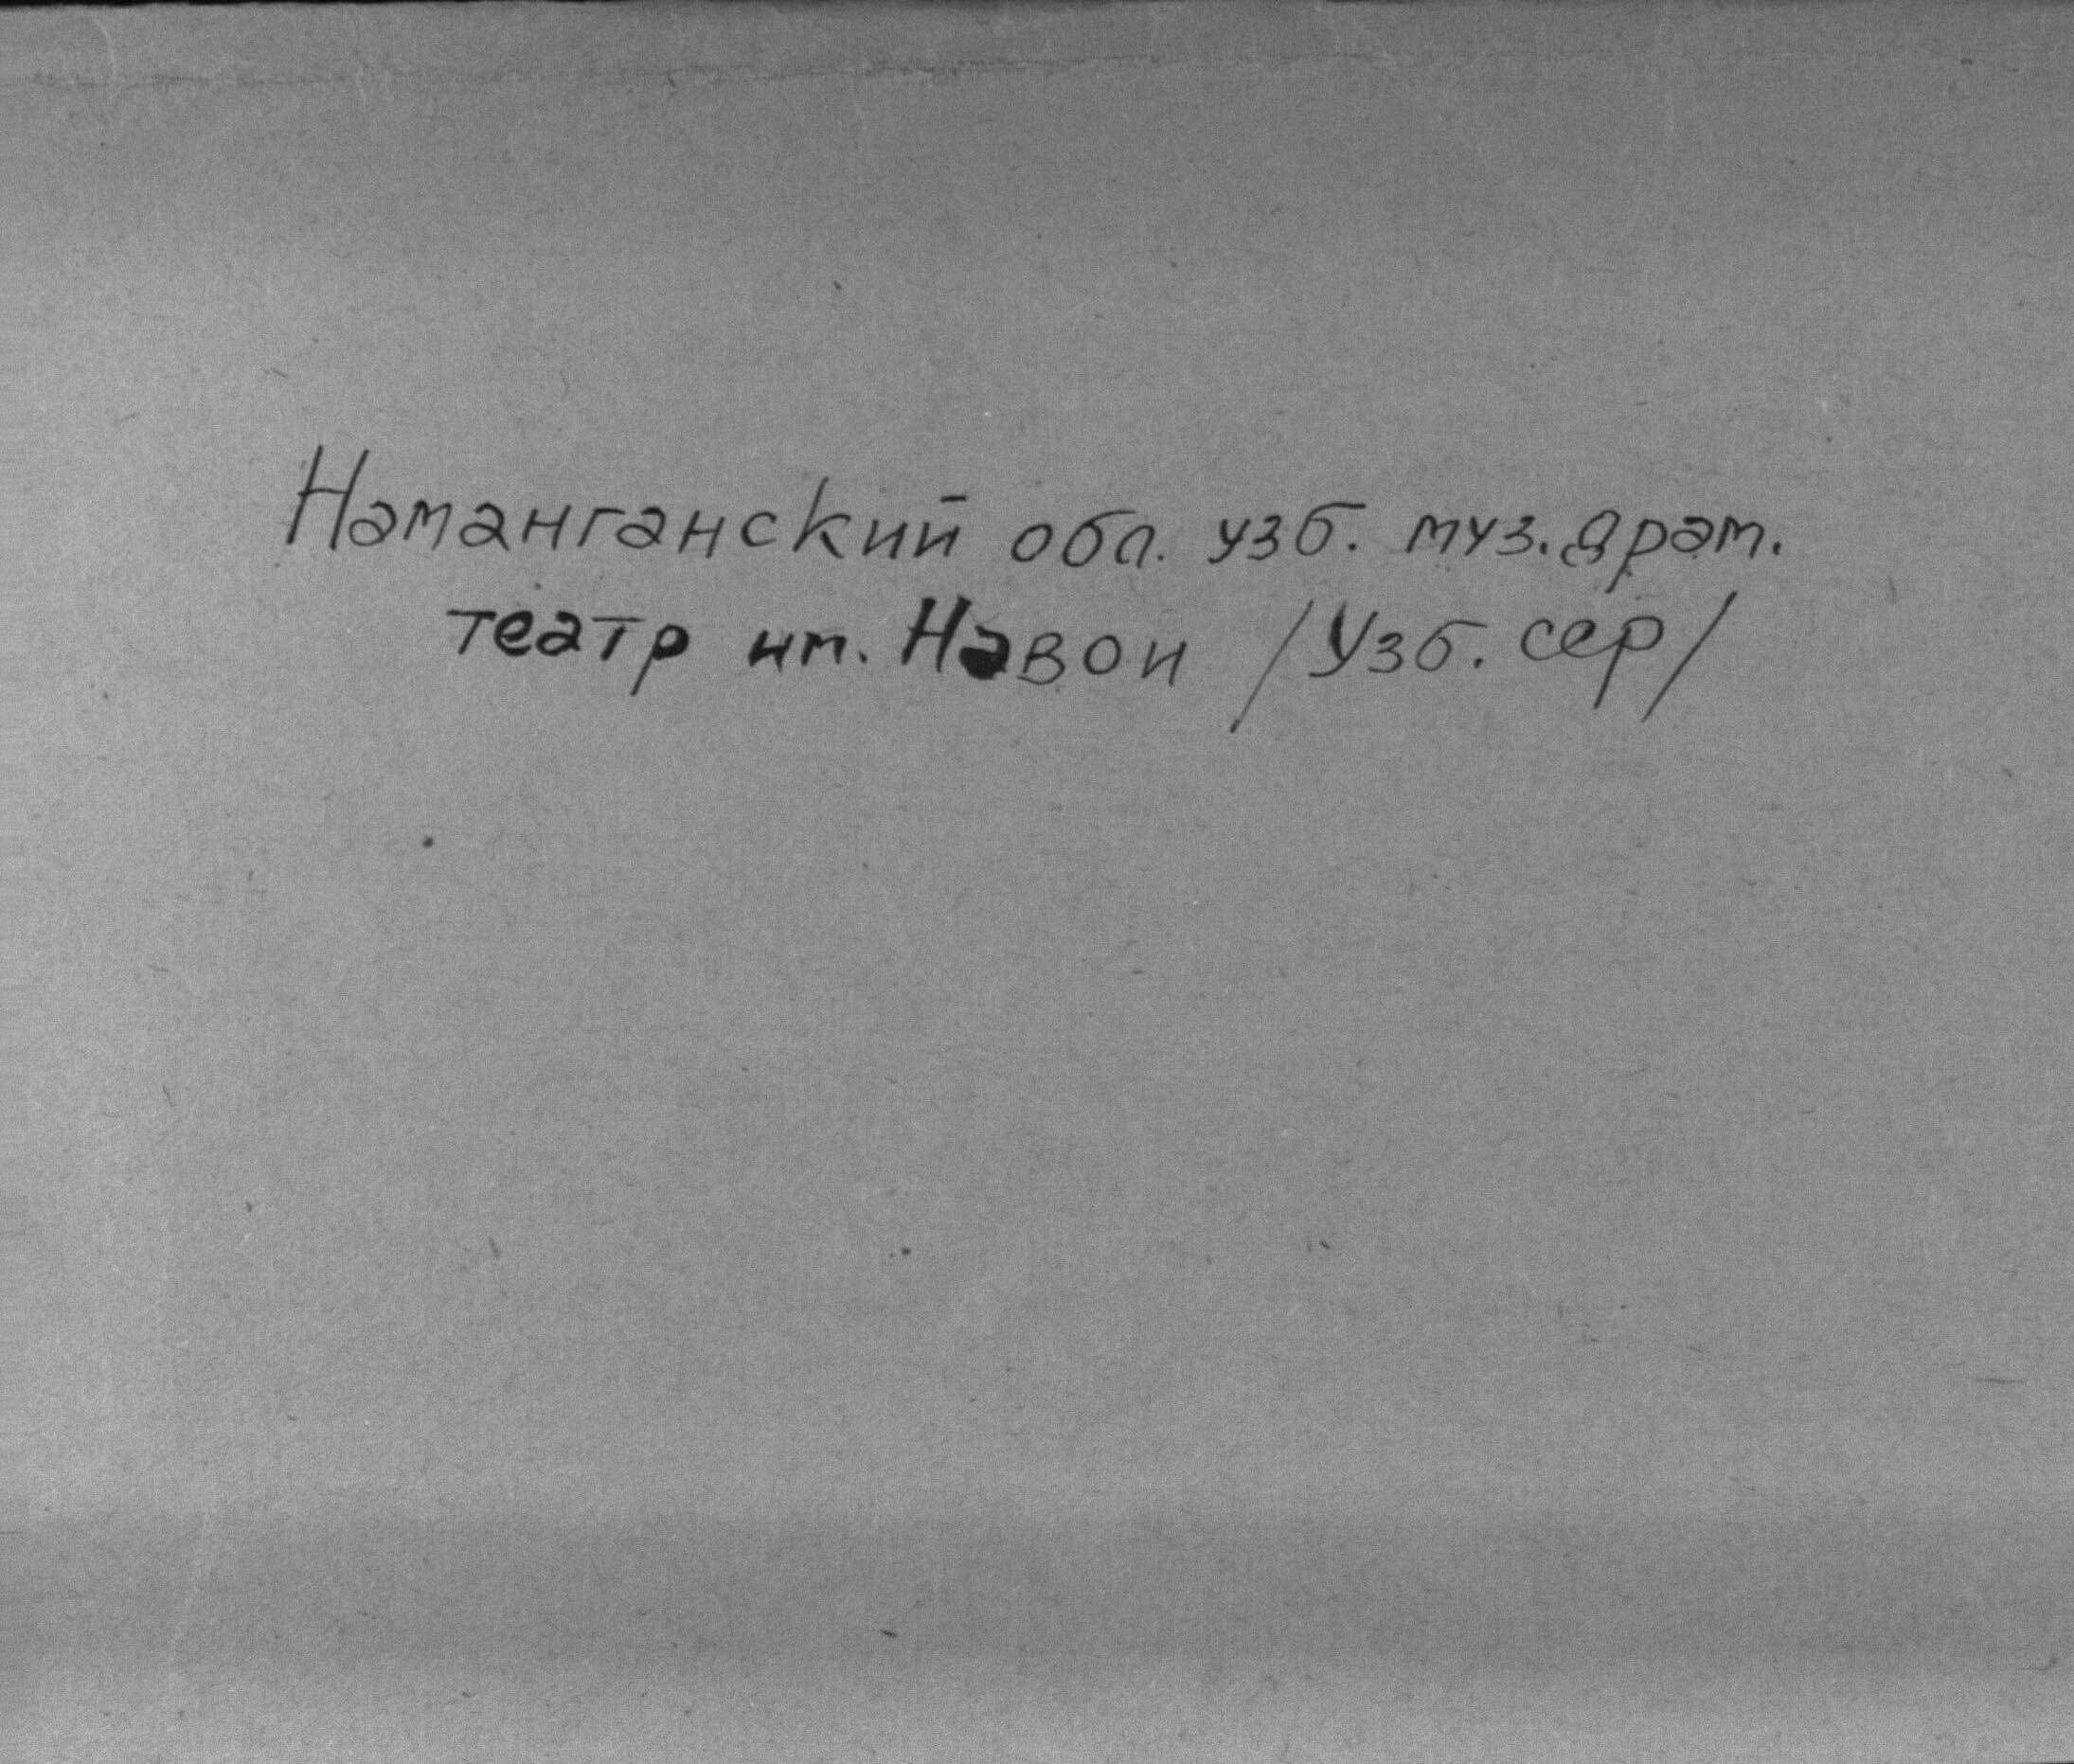 Наманганский обл. узб. муз. драм.
театр им. Навои /Узб. сср/